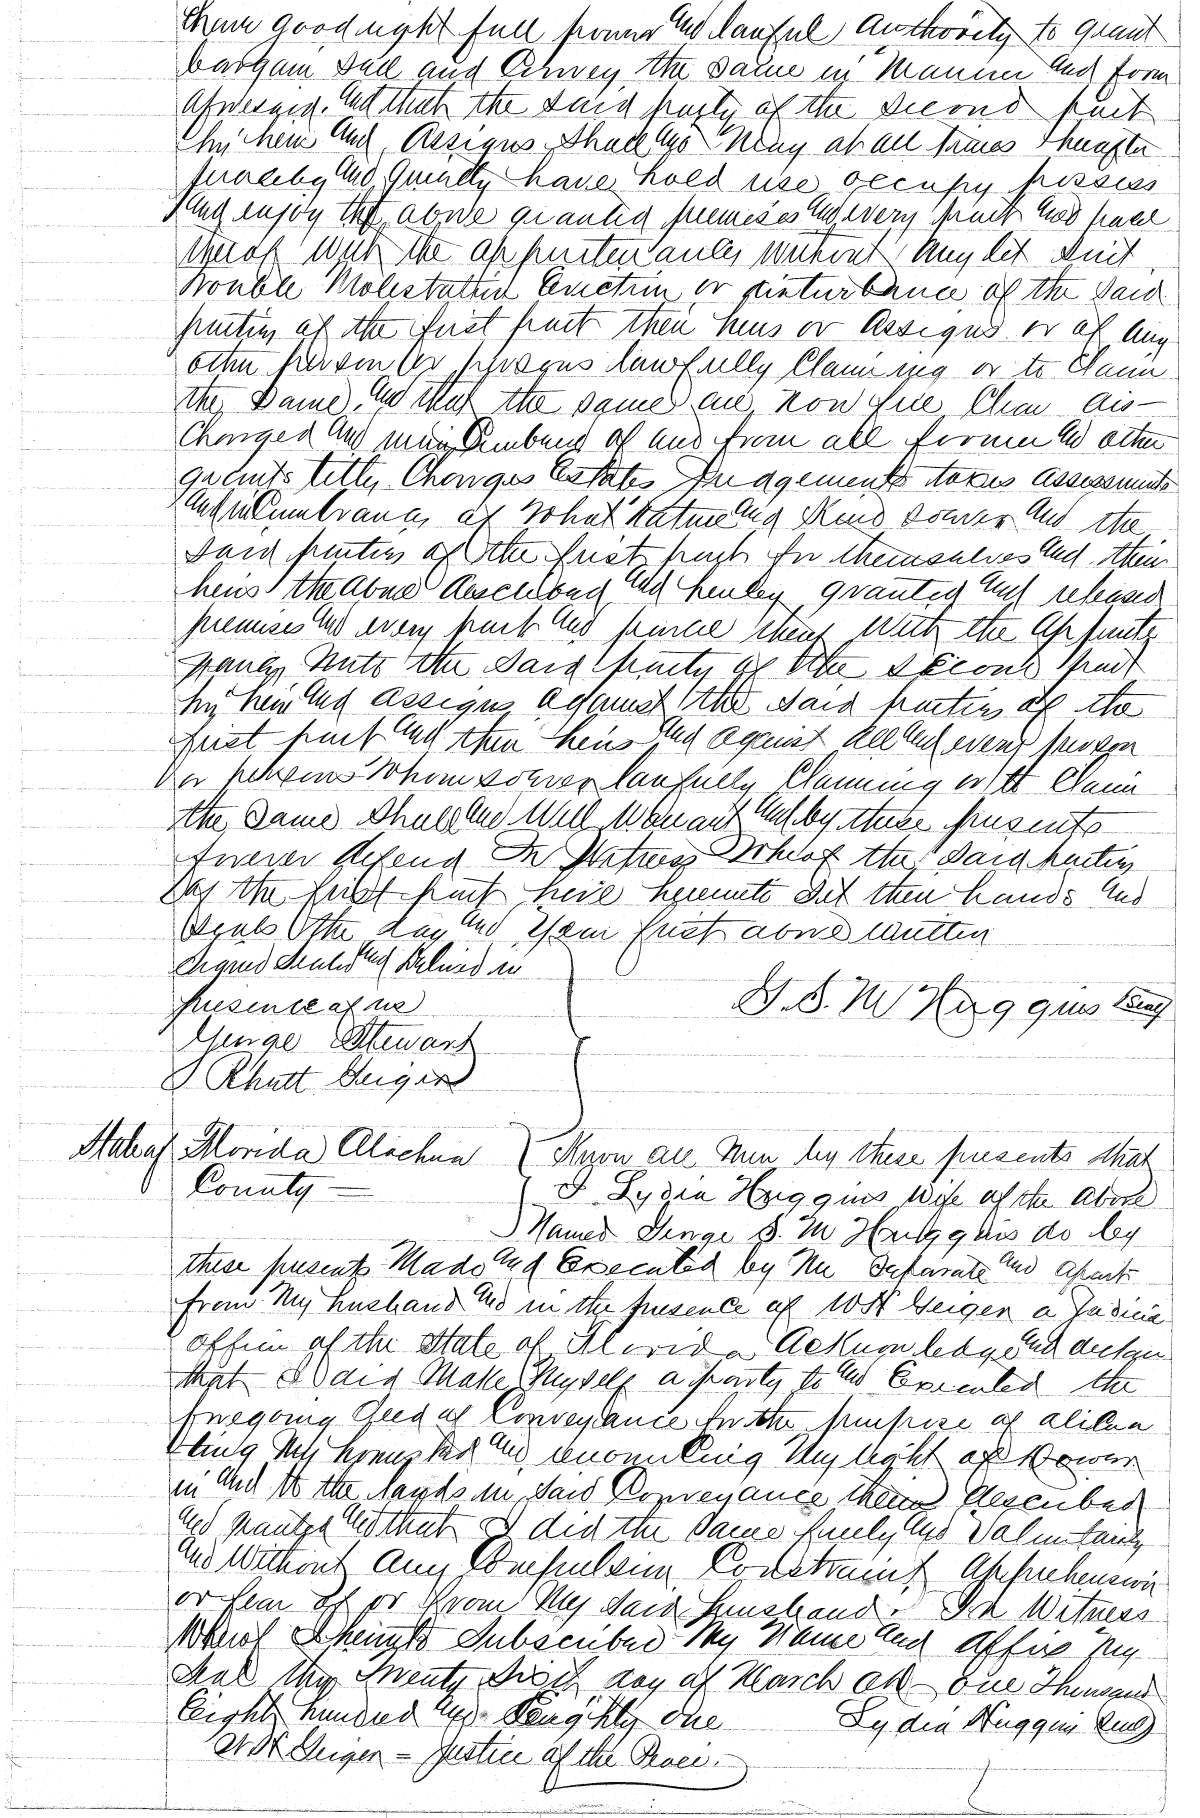 have good right full power and lawful authority to grant
bargain sell and Convey the same in Manner and form
aforesaid. And that the said party of the second part
his heirs and Assigns Shall and May at all times thereafter
peaceby and quietly have hold use occupy possess
and enjoy the above granted premises and every part and parcel
therof With the appurtenances Without any let suit
trouble Molestation Eviction or disturbance of the said
parties of the first part their heirs or Assigns or of any
other person or persons lawfully Claiming or to Claim
the same, and that the same are now free Clear dis-
Charged and unincumbered of and from all former and other
grants titles Charges Estates Judgements taxes assessments
and incumbrances of What Nature and Kind soever and the
said parties of the first part for themselves and their
heirs the above described and hereby granted and released
premises and every part and parcel therof With the appurte
nances unto the said party of the second part
his heirs and assigns against the said parties of the
first part and their heirs and against all and every person
or persons Whomsoever lawfully Claiming or to Claim
the same Shall and Will Warrant and by these presents
forever defend In Witness Wherof the said parties
of the first part have hereunto set their hands and
seals the day and Year first above written
Signed Sealed and Delivered in
presence of us
G. S. M Huggins (Seal)
George Stewart
J Rhutt Geiger
State of Florida Alachua } Know all Men by these presents that
County — I Lydia Huggins wife of the above
Named George S. M Huggins do by
these presents Made and Executed by Me separate and apart
from My husband and in the presence of W H Geiger a Judicial
officer of the State of Florida Acknowledge and declare
that I did Make Myself a party to and Executed the
foregoing deed of Conveyance for the purpose of aliena
ting My homestead and renouncing My right of Dower
in and to the lands in said Conveyance therein described
and granted and that I did the same freely and Voluntarily
and Without any Compulsion Constraint apprehension
or fear of or from My said husband. In Witness
Wherof I hereunto Subscribed My Name and Affix My
Seal this Twenty Sixth day of March AD one Thousand
Eight hundred and Eighty one Lydia Huggins (Seal)
W H Geiger = Justice of the Peace.